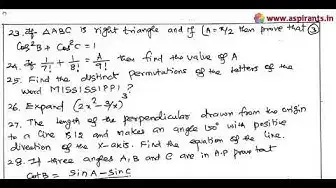 www.aspirants.in
23. If ΔABC is right triangle and if ∠A = π/2 then prove that ③
Cos²B + Cos²C = 1
24. If 1/7! + 1/8! = A/9! then find the value of A
25. Find the distinct permutations of the letters of the
word MISSISSIPPI ?
26. Expand (2x² - 3/x)³
27. The length of the perpendicular drawn from the origin
to a line is 12 and makes an angle 150° with positive
direction of the X-axis. Find the equation of the line.
28. If three angles A, B and C are in A.P prove that
Cot B = Sin A - Sin C